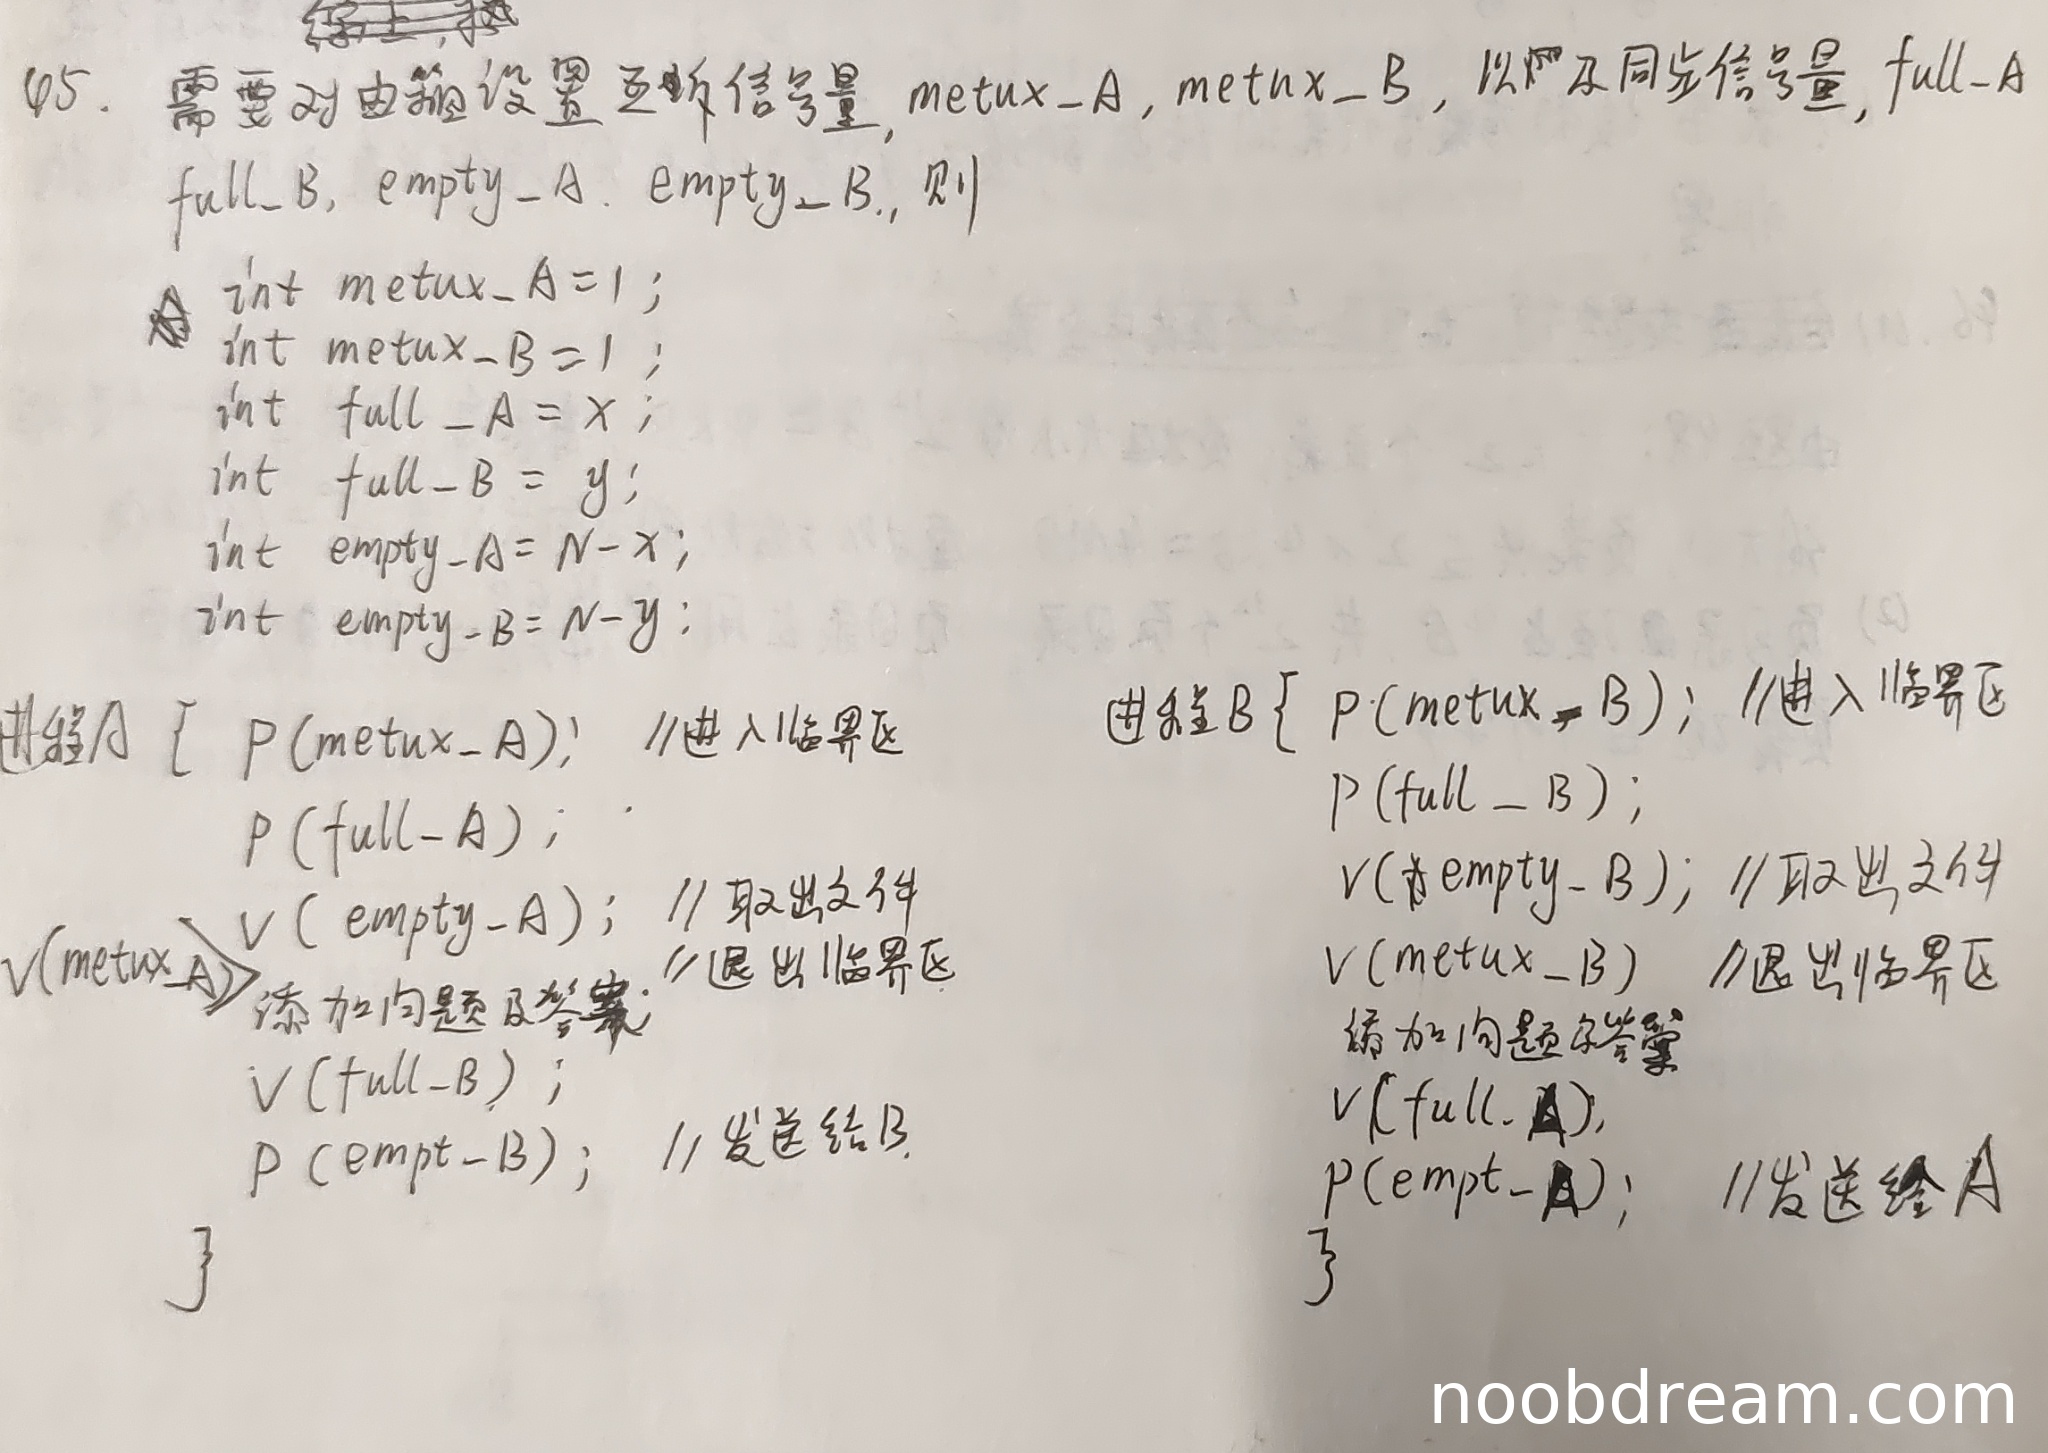 45. 需要对邮箱设置互斥信号量, metux_A, metux_B, 以及同步信号量, full_A
full_B, empty_A. empty_B., 则
int metux_A=1;
int metux_B=1;
int full_A=x;
int full_B=y;
int empty_A=N-x;
int empty_B=N-y;
进程A { P(metux_A); //进入临界区
P(full_A);
V(empty_A); //取出文件
V(metux_A) //退出临界区
添加问题及答案;
V(full_B);
P(empt_B); //发送给B.
}
进程B { P(metux_B); //进入临界区
P(full_B);
V(empty_B); //取出文件
V(metux_B) //退出临界区
添加问题和答案
V(full_A);
P(empt_A); //发送给A
}
noobdream.com